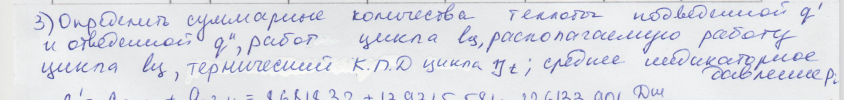 3) Определить суммарные количества теплоты подведенной q'
и отведенной q", работ цикла lц, располагаемую работу
цикла lц, термический К.П.Д цикла ηt; среднее индикаторное
давление Pi